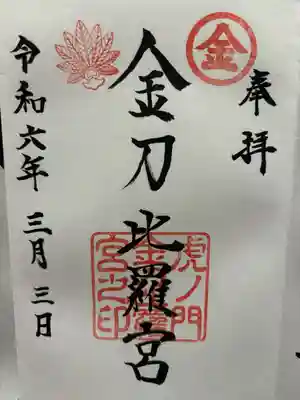 奉拝
金
金刀比羅宮
虎ノ門
金刀比羅
宮之印
令和六年 三月 三日